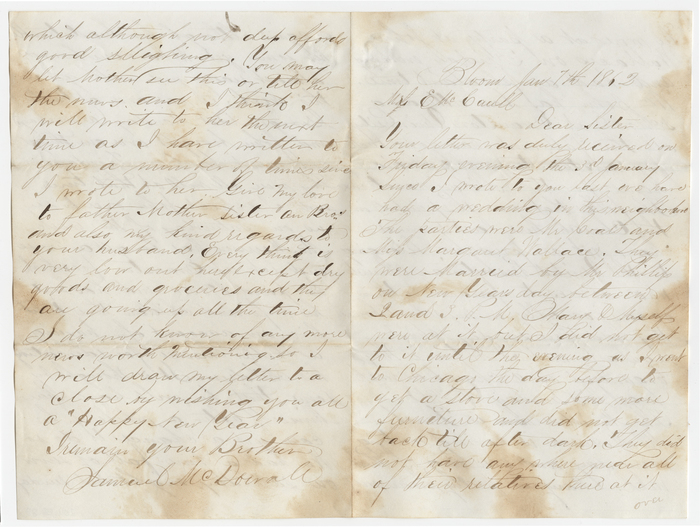 Bloom Jan 7th 1862
Mrs E McCowell
Dear Sister
Your letter was duly received on
Friday evening the 3d January
since I wrote to you last we have
had a wedding in this neighborhood
The parties were Mr and
Miss Margaret Wallace. They
were married by Mr
on New Years day between
2 and 3 P.M. Mary & Myself
were at it but I did not get
to it until the evening as I went
to Chicago the day before to
get a stove and some more
furniture and did not get
back till after dark. They did
not have any where near all
of their relatives there at it
over
which although not deep affords
good sleighing. You may
let Mother see this or tell her
the news and I think I
will write to her the next
time as I have written to
your a number of times since
I wrote to her. Give my love
to father Mother sister an Bros
and also my kind regards to
your husband. Every thing is
very low out here except dry
goods and groceries and they
are going up all the time
I do not know of any more
news worth mentioning so I
will draw my letter to a
close by wishing you all
a "Happy New Year"
I remain your Brother
Samuel McDowell